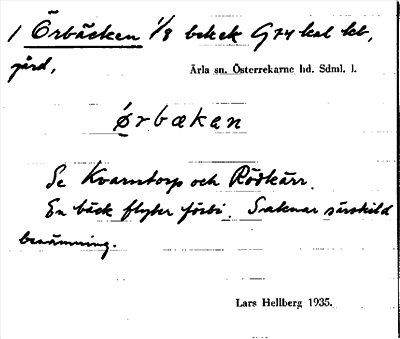 1 Örbäcken 1/8 bebek G74 kal kb,
gård,
Ärla sn. Österrekarne hd. Sdml. l.
ørbækan
Se Kvarntorp och Rödkärr.
En bäck flyter förbi. Saknar särskild
benämning.
Lars Hellberg 1935.